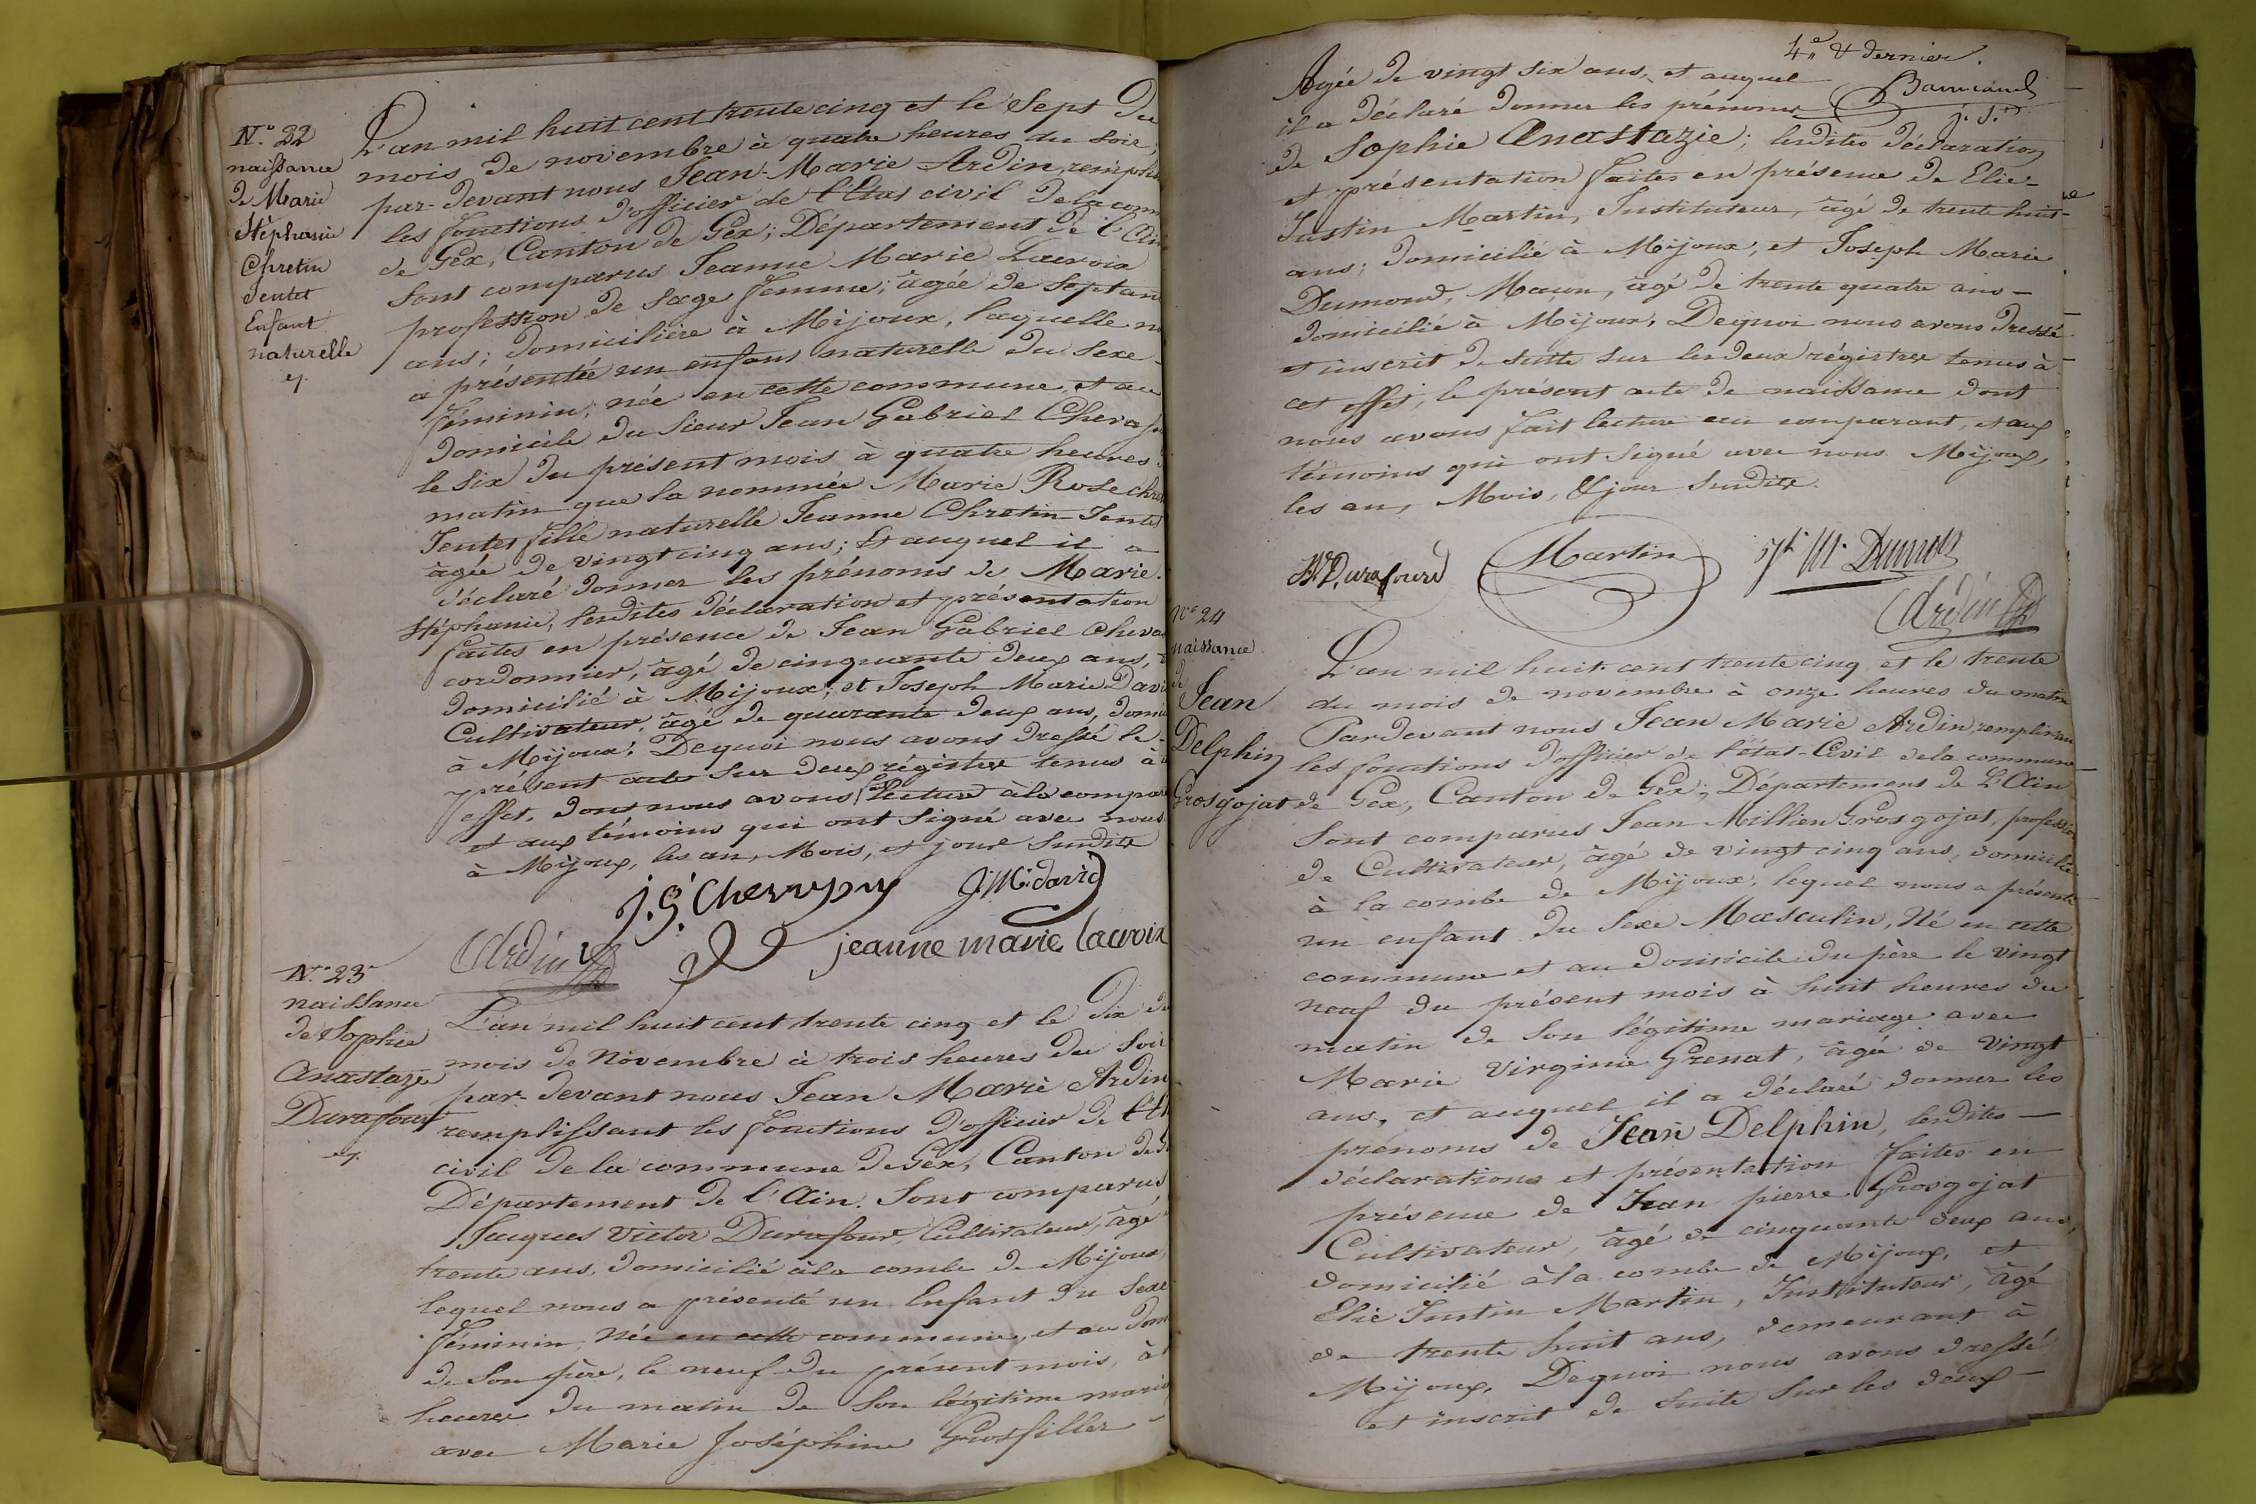 N.° 22
naissance
de Marie
Stéphanie
Chretin
Jentet
Enfant
naturelle
L'an mil huit cent trente cinq et le Sept Du
mois de novembre à quatre heures du soir,
par-devant nous Jean-Marie Ardin, remplis
les fonctions d'officier de l'Etat civil de la com
de Gex, Canton de Gex; Département de l'Ain
Sont comparus Jeanne Marie Lacroix
profession de Sage femme; âgée de Septan
ans; domicilière à Mijoux, laquelle n
a présentée un enfant naturelle du Sexe
féminin; née en cette commune, et au
domicile du Sieur Jean Gabriel Chevas
le Six du présent mois à quatre heures
matin que la nommée Marie Rose chr
Jentet fille naturelle Jeanne Chretin-Jentet
âgée de vingt cinq ans; Et auquel il a
déclaré donner les prénoms de Marie
Stéphanie, lesdites déclaration et présentation
faites en présence de Jean Gabriel Cheva
cordonnier, âgé de cinquante deux ans,
domicilié à Mijoux; et Joseph Marie Davi
Cultivateur, âgé de quarante deux ans, domi
à Mijoux; Dequoi nous avons dressé le
présent acte sur deux régistre tenus à
effet, dont nous avons fait lecture à la compar
et aux témoins qui ont signé avec nous
à Mijoux, les an, Mois, et jour Susdite
J. M. david
Ardin
jeanne marie lacroix
N.° 23
naissance
de Sophie
Anastazie
Durafour
L'an mil huit cent trente cinq et le Dix du
mois de Novembre à trois heures du Soir
par-devant nous Jean Marie Ardin
remplissant les fonctions d'officier de l'Et
civil de la commune de Gex, Canton de G
Département de l'Ain. Sont comparus
Jacques Victor Durafour, Cultivateur, âgé
trente ans, domicilié à la combe de Mijoux,
lequel nous a présenté un Enfant du Sexe
féminin, Née en cette commune, et au Dom
de Son père, le neuf du présent mois, à
heures du matin de Son légitime maria
avec Marie Joséphine Grosfiller
4.e & dernier.
Agée de vingt six ans, et auquel
il a déclaré donner les prénoms
de Sophie Anastazie; lesdites déclaration
et présentation faites en présence de Elie-
Justin Martin, Instituteur, âgé de trente huit-
ans; domicilié à Mijoux; et Joseph Marie
Dumond, Maçon, âgé de trente quatre ans-
domicilié à Mijoux, Dequoi nous avons dressé
et inscrit de suite sur les deux régistre tenus à
cet effet, le présent acte de naissance dont
nous avons fait lecture au comparant, et aux
témoins qui ont signé avec nous. Mijoux,
les an, Mois, & jour Susdite.
Durafourd Martin J.h M. Dumon
Ardin
N.° 24
naissance
de
Jean
Delphin
Grosgojat
L'an mil huit cent trente cinq et le trente
du mois de novembre à onze heures du matin
Pardevant nous Jean Marie Ardin, remplissan
les fonctions d'officier de l'état-Civil de la commune
de Gex, Canton de Gex; Département de L'Ain
Sont comparus Jean Millien Grosgojat, profession
de Cultivateur, âgé de vingt cinq ans, domicilié
à la combe de Mijoux, lequel nous a présenté
un enfant du Sexe Masculin, Né en cette
commune et au domicile du père le vingt
neuf du présent mois à huit heures du
matin de Son légitime mariage avec
Marie Virginie Grenat, âgée de vingt
ans, et auquel il a déclaré donner les
prénoms de Jean Delphin, lesdites
déclarations et présentation faites en
présence de Jean pierre Grosgojat
Cultivateur, âgé de cinquante deux ans,
domicilié à la combe de Mijoux, et
Elie Justin Martin, Instituteur, âgé
de trente huit ans, demeurant à
Mijoux, Dequoi nous avons dressé
et inscrit de Suite Sur les deux